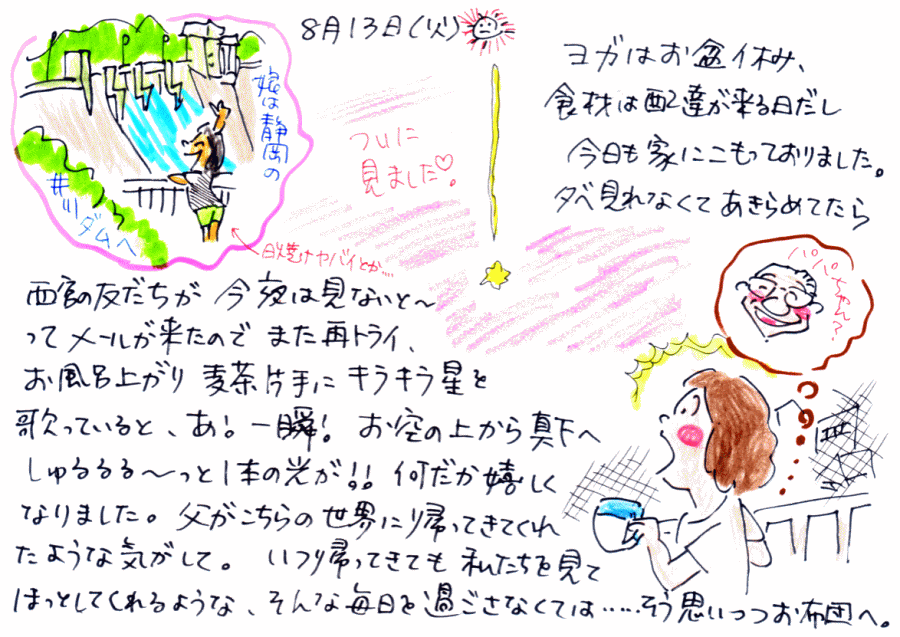 8月13日(火)
娘は静岡の
井川ダムへ
日焼けヤバイとか…
ついに
見ました♡。
ヨガはお盆休み、
食材は配達が来る日だし
今日も家にこもっておりました。
夕べ見れなくてあきらめてたら
パパちゃん?
西宮の友だちが 今夜は見ないと〜
ってメールが来たので また再トライ、
お風呂上がり 麦茶片手に キラキラ星を
歌っていると、あ!一瞬! お空の上から真下へ
しゅるるる〜っと1本の光が!! 何だか嬉しく
なりました。父がこちらの世界に帰ってきてくれ
たような気がして。 いつ帰ってきても 私たちを見て
ほっとしてくれるような、そんな毎日を過ごさなくては……そう思いつつお布団へ。